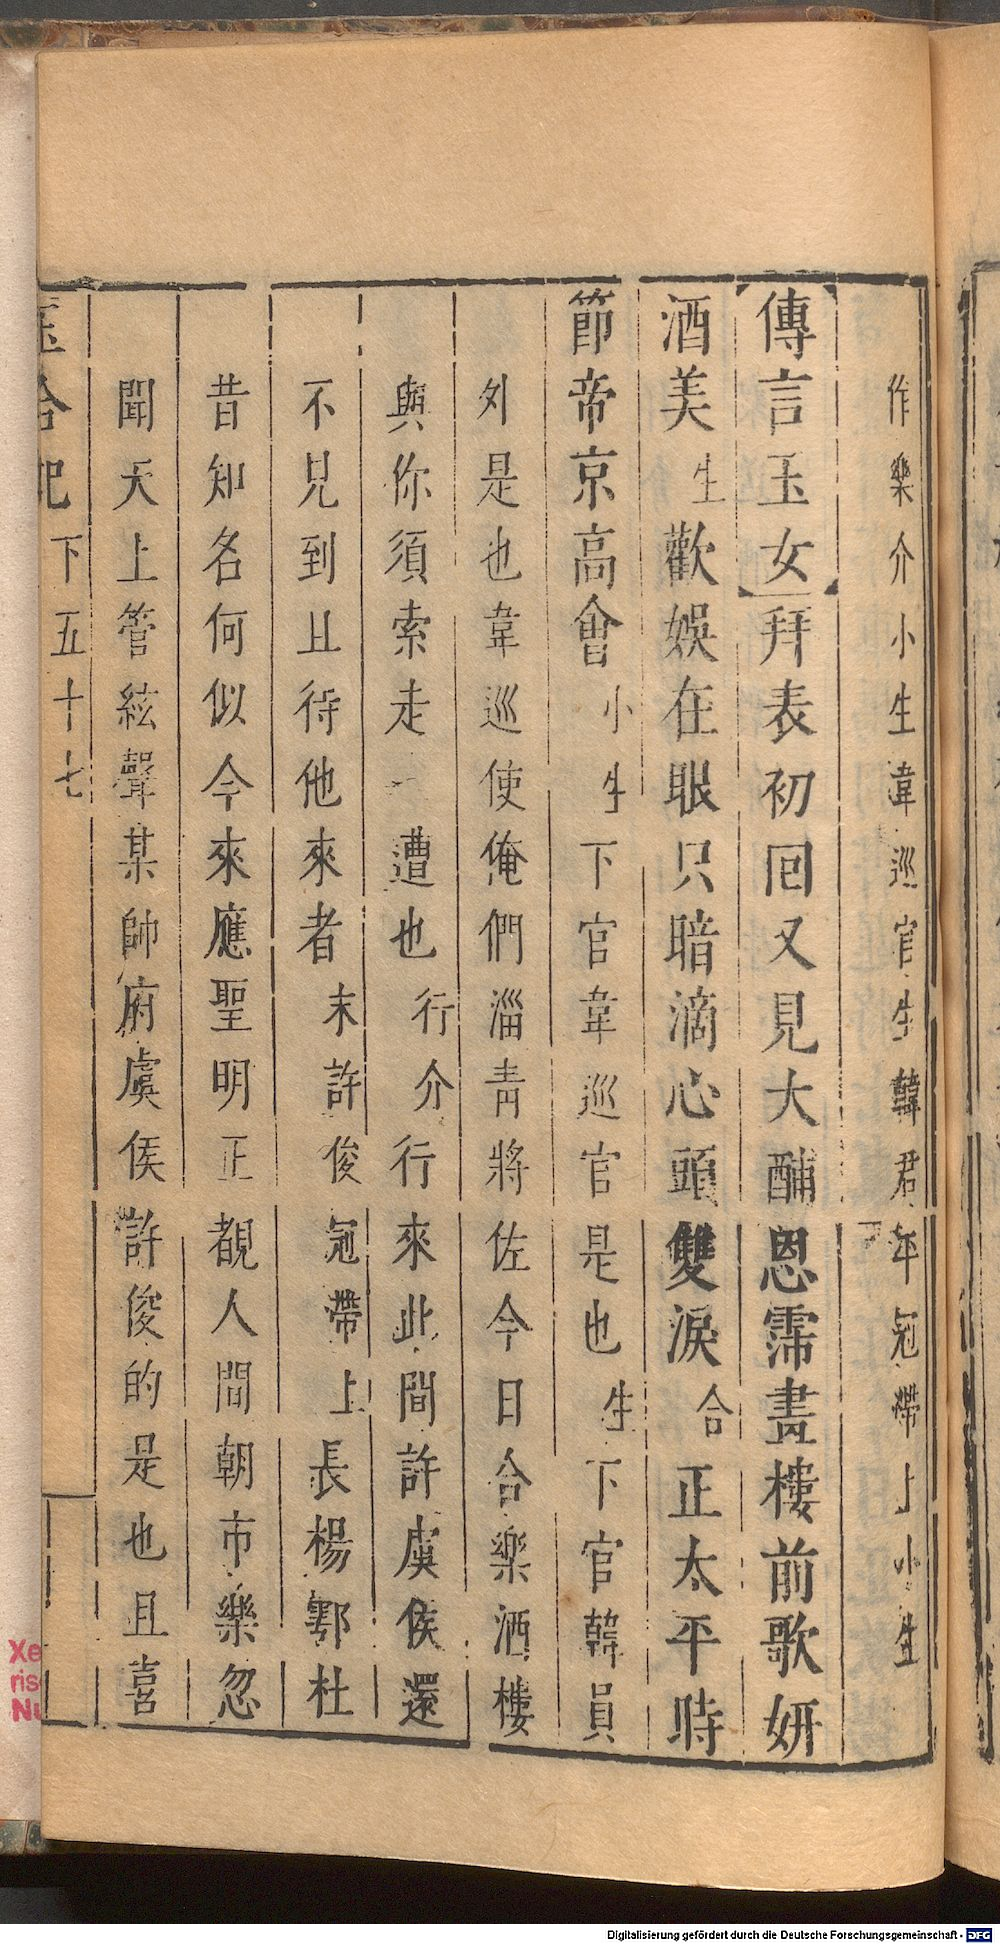 作樂介小生韋巡官生韓君年冠帶上小生
傳言玉女拜表初回又見大酺恩霈畫樓前歌妍
酒美生歡娛在眼只暗滴心頭雙淚合正太平時
節帝京高會小生下官韋巡官是也生下官韓員
外是也韋巡使俺們淄青將佐今日合樂酒樓
與你須索走一遭也行介行來此間許虞侯還
不見到且待他來者末許俊冠帶上長楊鄠杜
昔知名何似今來應聖明正覩人間朝市樂忽
聞天上管絃聲某帥府虞侯許俊的是也且喜
玉合記下五十七
Digitalisierung gefördert durch die Deutsche Forschungsgemeinschaft - DFG